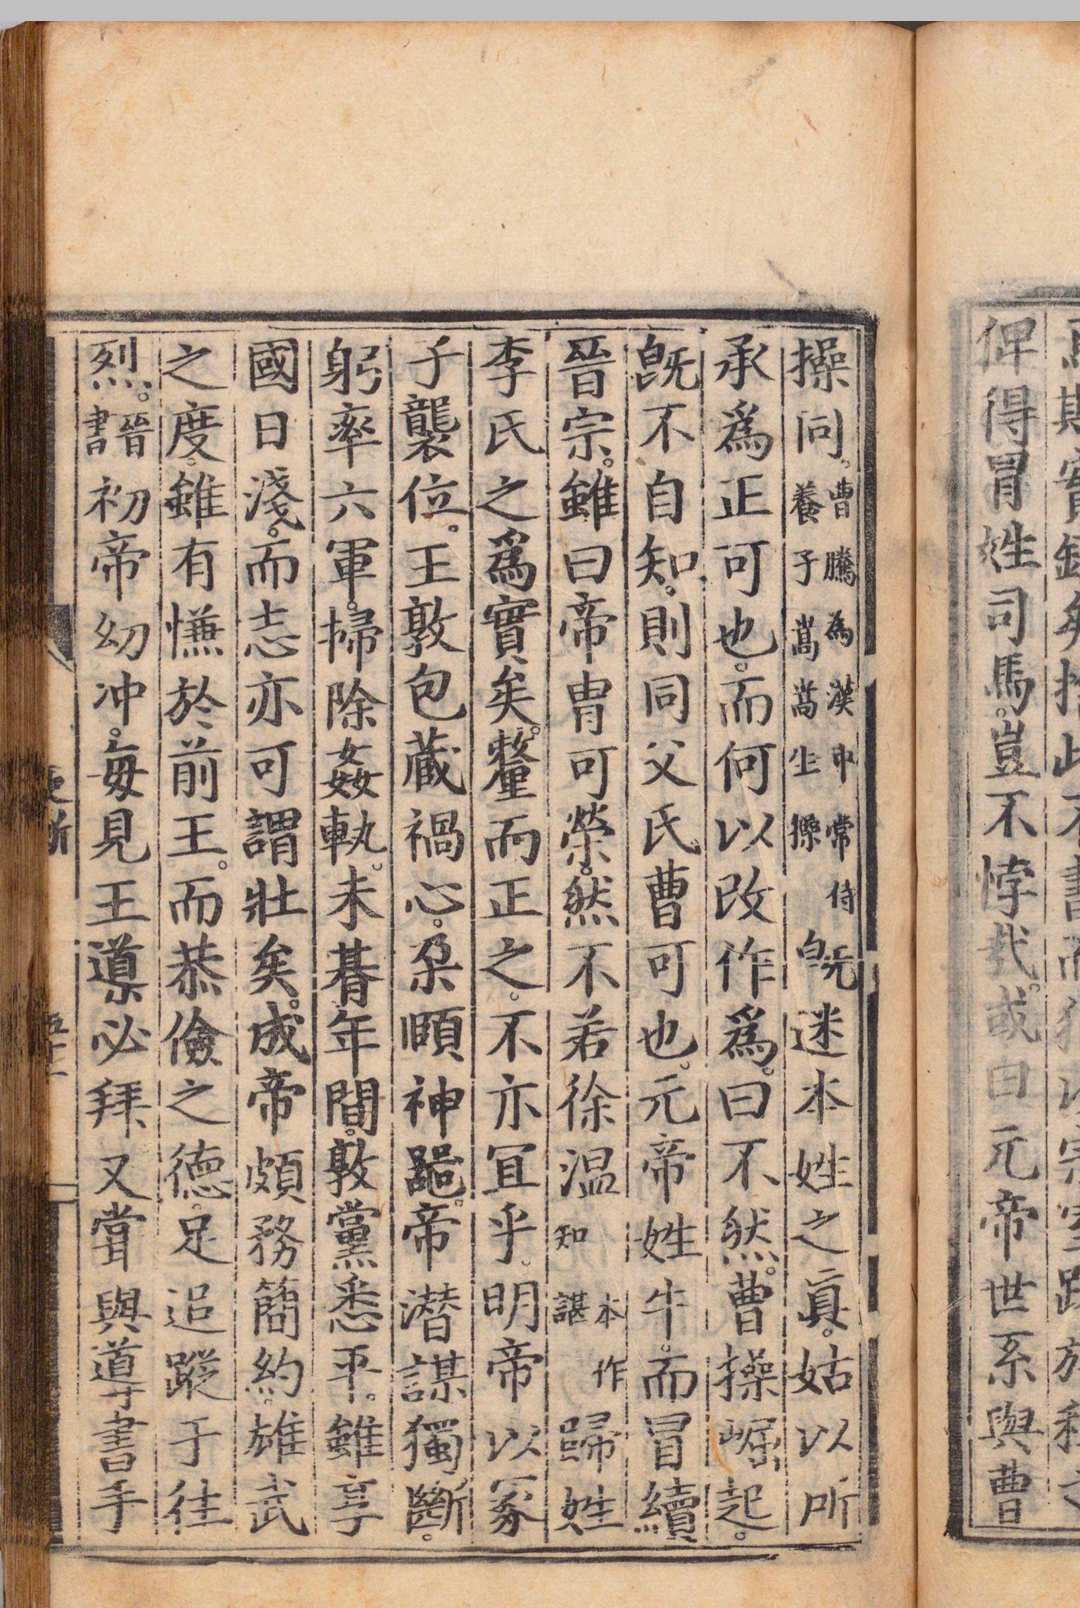 實錄矣捨此不書而猶以宗室
俾得冒姓司馬。豈不悖哉。或曰元帝世系與曹
操同。曹騰為漢中常侍養子嵩嵩生操旣迷本姓之眞。姑以所
承爲正可也。而何以改作爲。曰不然。曹操崛起。
旣不自知。則同父氏曹可也。元帝姓牛。而冒續
晉宗。雖曰帝冑可榮。然不若徐温本作知諶歸姓
李氏之爲實矣。釐而正之。不亦宜乎。明帝以冢
子襲位。王敦包藏禍心。朶頤神器。帝潜謀獨斷。
躬率六軍。掃除姦執。未朞年間。敦黨悉平。雖享
國日淺。而志亦可謂壯矣。成帝頗務簡約。雄武
之度。雖有慊於前王。而恭儉之德。足追蹤于往
烈。晉書初帝幼冲。每見王導必拜又嘗與導書手